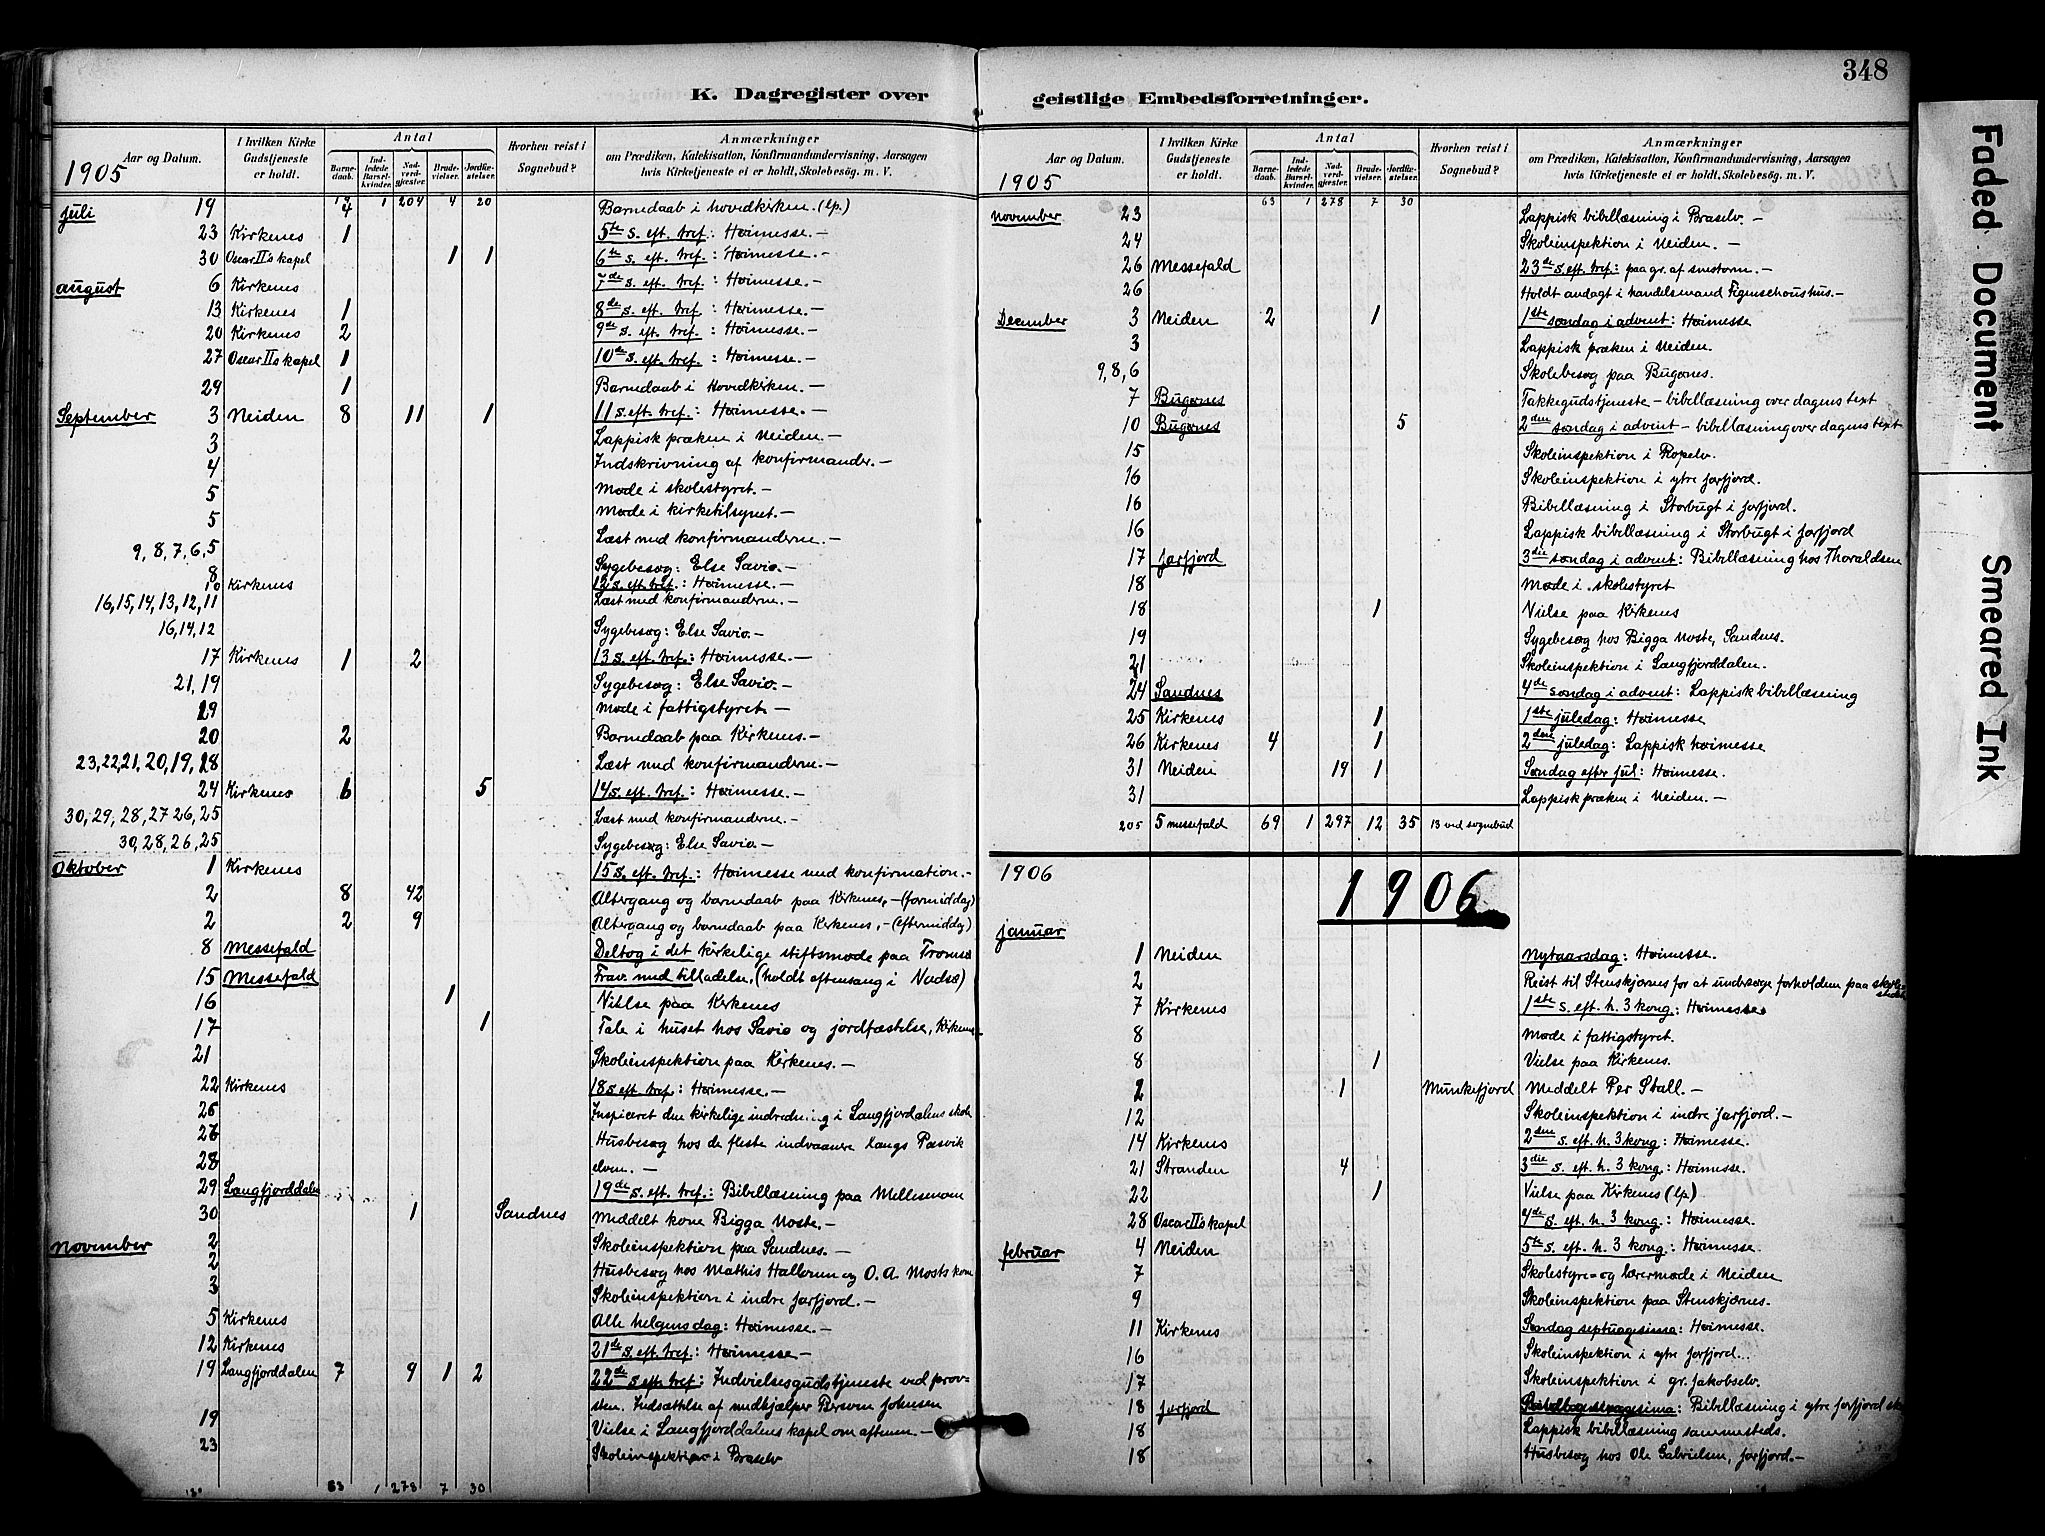 348
K. Dagregister over
geistlige Embedsforretninger.
Faded Document
Smeared Ink
Aar og Datum.
I hvilken Kirke Gudstjeneste er holdt.
Antal
Barnedaab.
Indledede Barselkvinder.
Nadverdgjester.
Brudevielser.
Jordfæstelser.
Hvorhen reist i Sognebud?
Anmærkninger
om Prædiken, Katekisation, Konfirmandundervisning, Aarsagen
hvis Kirketjeneste ei er holdt, Skolebesøg. m. V.
1905
1 204 4 20
Juli 19 4 Barnedaab i hovedkirken. (lp.)
23 Kirkenes 1 5te s. eft. tref.: Høimesse. –
30 Oscar II's kapel 1 1 6te s. eft. tref.: Høimesse. –
august 6 Kirkenes 7de s. eft. tref.: Høimesse. –
13 Kirkenes 1 8de s. eft. tref.: Høimesse. –
20 Kirkenes 2 9de s. eft. tref.: Høimesse. –
27 Oscar II's kapel 1 10de s. eft. tref.: Høimesse. –
29 1 Barnedaab i Hovedkirken. –
September 3 Neiden 8 11 1 11 s. eft. tref.: Høimesse. –
3 Lappisk præken i Neiden. –
4 Indskrivning af konfirmander. –
5 Møde i skolestyret. –
5 Møde i kirketilsynet. –
9, 8, 7, 6, 5 Læst med konfirmanderne. –
8 Sygebesøg: Else Savio. –
10 Kirkenes 12 s. eft. tref.: Høimesse. –
16, 15, 14, 13, 12, 11 Læst med konfirmanderne. –
16, 14, 12 Sygebesøg: Else Savio. –
17 Kirkenes 1 2 13 s. eft. tref.: Høimesse. –
21, 19 Sygebesøg: Else Savio. –
19 Møde i fattigstyret –
20 2 Barnedaab paa Kirkenes. –
23, 22, 21, 20, 19, 18 Læst med konfirmanderne. –
24 Kirkenes 6 5 14 s. eft. tref.: Høimesse. –
30, 29, 28, 27 26, 25 Læst med konfirmanderne. –
30, 28, 26, 25 Sygebesøg: Else Savio –
Oktober 1 Kirkenes 15 s. eft. tref.: Høimesse med konfirmation. –
2 8 42 Altergang og barnedaab paa Kirkenes, – (formiddag)
2 2 9 Altergang og barndaab paa Kirkenes, – (eftermiddag)
8 Messefald Deltog i det kirkelige stiftsmøde paa Tromsø
15 Messefald Frav. med tilladelse, (holdt aftensang i Vadsø)
16 1 Vielse paa Kirkenes
17 1 Tale i huset hos Savio og jordfæstelse, Kirkenes
21 Skoleinspektion paa Kirkenes. –
22 Kirkenes 18 s. eft. tref.: Høimesse. –
26 Inspiceret den kirkelige indredning i Langfjordalens skole
27 Husbesøg hos de fleste indvaanere langs Pasvik
28 elven. –
29 Langfjorddalen 19de s. eft. tref.: Bibellæsning paa Mellesmom
30 1 Sandnes Meddelt kone Bigga Noste. –
November 2 Skoleinspektion paa Sandnes. –
2 Husbesøg hos Mathis Halloren og O. A. Mosts kone
3 Skoleinspektion i indre Jarfjord. –
5 Kirkenes Alle helgens dag: Høimesse. –
12 Kirkenes 21de s. eft. tref.: Høimesse –
19 Langfjorddalen 7 9 1 2 22de s. eft. tref.: Indvielsesgudstjeneste ved prov-
sten. Indsættelse af medhjælper Johnsen
19 Vielse i Langfjorddalens kapel om aftenen. –
23 Skoleinspektion i Braselv
63 1 278 7 30
Aar og Datum.
I hvilken Kirke Gudstjeneste er holdt.
Antal
Barnedaab.
Indledede Barselkvinder.
Nadverdgjester.
Brudevielser.
Jordfæstelser.
Hvorhen reist i Sognebud?
Anmærkninger
om Prædiken, Katekisation, Konfirmandundervisning, Aarsagen
hvis Kirketjeneste ei er holdt, Skolebesøg. m. V.
1905
63 1 278 7 30
November 23 Lappisk bibellæsning i Braselv. –
24 Skoleinspektion i Neiden. –
26 Messefald 23de s. eft. tref.: paa gr. af snestorm. –
26 Holdt andagt i handelsmand Figenschous hus. –
December 3 Neiden 2 1 1ste søndag i advent: Høimesse
3 Lappisk præken i Neiden.
9, 8, 6 Skolebesøg paa Bugønes.
7 Bugønes Takkegudstjeneste – bibellæsning over dagens text
10 Bugønes 5 2den søndag i advent – bibellæsning over dagens text
15 Skoleinspektion i Ropelv.
16 Skoleinspektion i ytre Jarfjord.
16 Bibellæsning i Storbugt i Jarfjord.
16 Lappisk bibellæsning i Storbugt i Jarfjord
17 Jarfjord 3die søndag i advent: Bibellæsning hos Thoraldsen
18 Møde i skolestyret
18 1 Vielse paa Kirkenes
19 Sygebesøg hos Bigga Noste, Sandnes.
21 Skoleinspektion i Langfjorddalen.
24 Sandnes 4de søndag i advent: Lappisk bibellæsning
25 Kirkenes 1 1ste juledag: Høimesse
26 Kirkenes 4 1 2den juledag: Lappisk høimesse
31 Neiden 19 1 Søndag efter jul: Høimesse.
31 Lappisk præken i Neiden. –
205 5 messefald 69 1 297 12 35 13 ved sognebud
1906 1906
Januar
1 Neiden Nytaarsdag: Høimesse.
2 Reist til Stenskjærnes for at undersøge forholdene paa skole-
stedet
7 Kirkenes 1ste s. eft. h. 3 kong.: Høimesse.
8 Møde i fattigstyret.
8 1 Vielse paa Kirkenes.
2 1 Munkefjord Meddelt Per Stall. –
12 Skoleinspektion i indre Jarfjord. –
14 Kirkenes 2den s. eft. h. 3 kong: Høimesse.
21 Stranden 4 3die s. eft. h. 3 kong.: Høimesse.
22 1 Vielse paa Kirkenes (lp.)
28 Oscar II's kapel 4de s. eft. h. 3 kong.: Høimesse.
februar 4 Neiden 5te s. eft. h. 3 kong.: Høimesse.
7 Skolestyre= og lærermøde i Neiden
9 Skoleinspektion paa Stenskjærnes.
11 Kirkenes Søndag septuagesima: Høimesse.
16 Skoleinspektion i ytre Jarfjord.
17 Skoleinspektion i gr. Jakobselv.
18 Jarfjord Bibellæsning i ytre Jarfjord
18 Lappisk bibellæsning sammesteds.
18 Husbesøg hos Ole Gabrielsen, Jarfjord. –